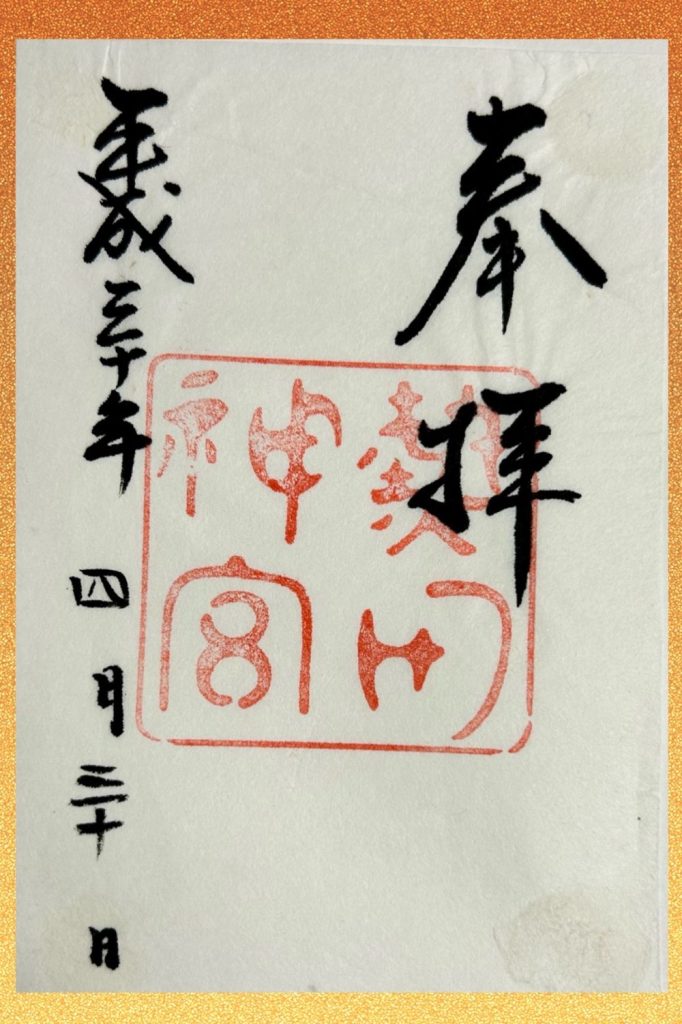 奉拝
熱田
神宮
平成三十年四月三十日